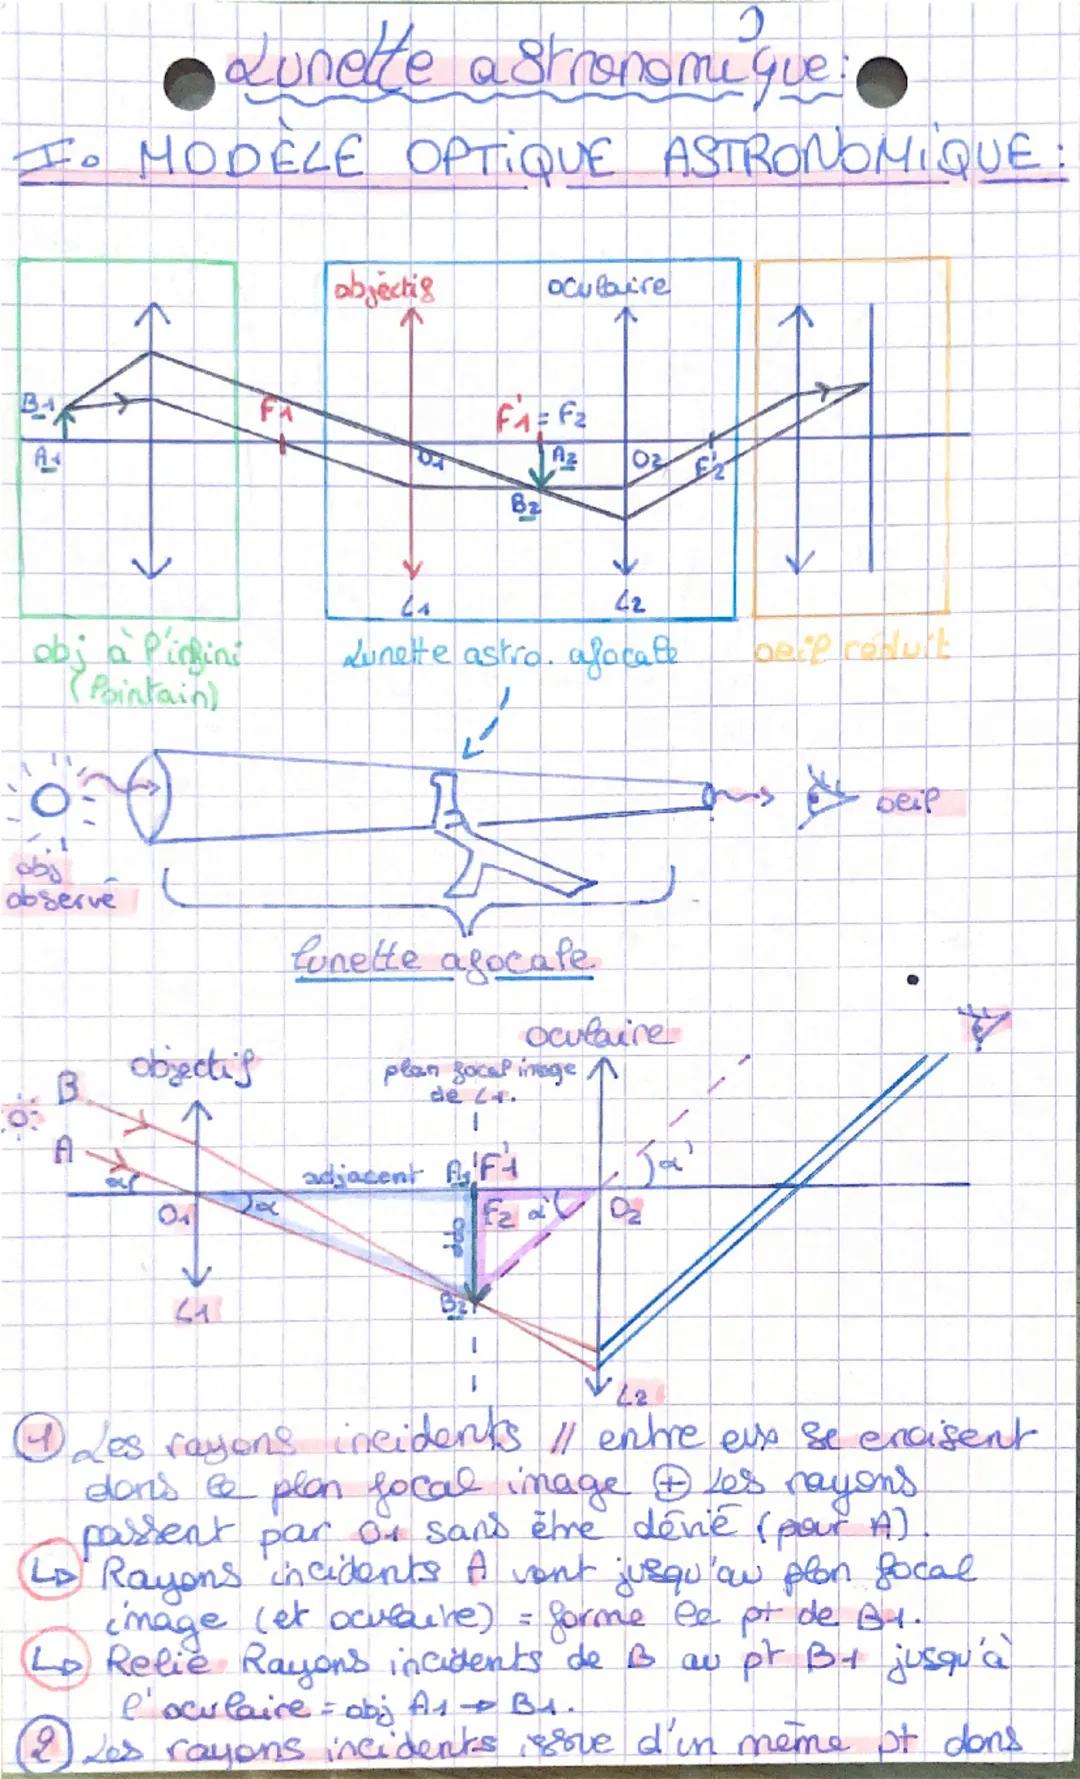 Lunette astronomique:
I. MODÈLE OPTIQUE ASTRONOMIQUE:
objectif
oculaire
B1
F1
F'1 = F2
A1
O1
A2
O2
F'2
B2
L1
L2
obj à l'infini
(lointain)
Lunette astro. afocale
oeil réduit
oeil
obj
observé
lunette afocale
oculaire
objectif
plan focal image
de L1.
B
A
α
adjacent
A1
F'1
α'
O1
α
opp
F2
α'
O2
B2
L1
L2
1 Les rayons incidents // entre eux se croisent
dans le plan focal image ⊕ Les rayons
passent par O1 sans être dévié (pour A).
↳ Rayons incidents A vont jusqu'au plan focal
image (et oculaire) = forme le pt de B1.
↳ Relie Rayons incidents de B au pt B1 jusqu'à
l'oculaire = obj A1 → B1.
2 Les rayons incidents issue d'un même pt dans